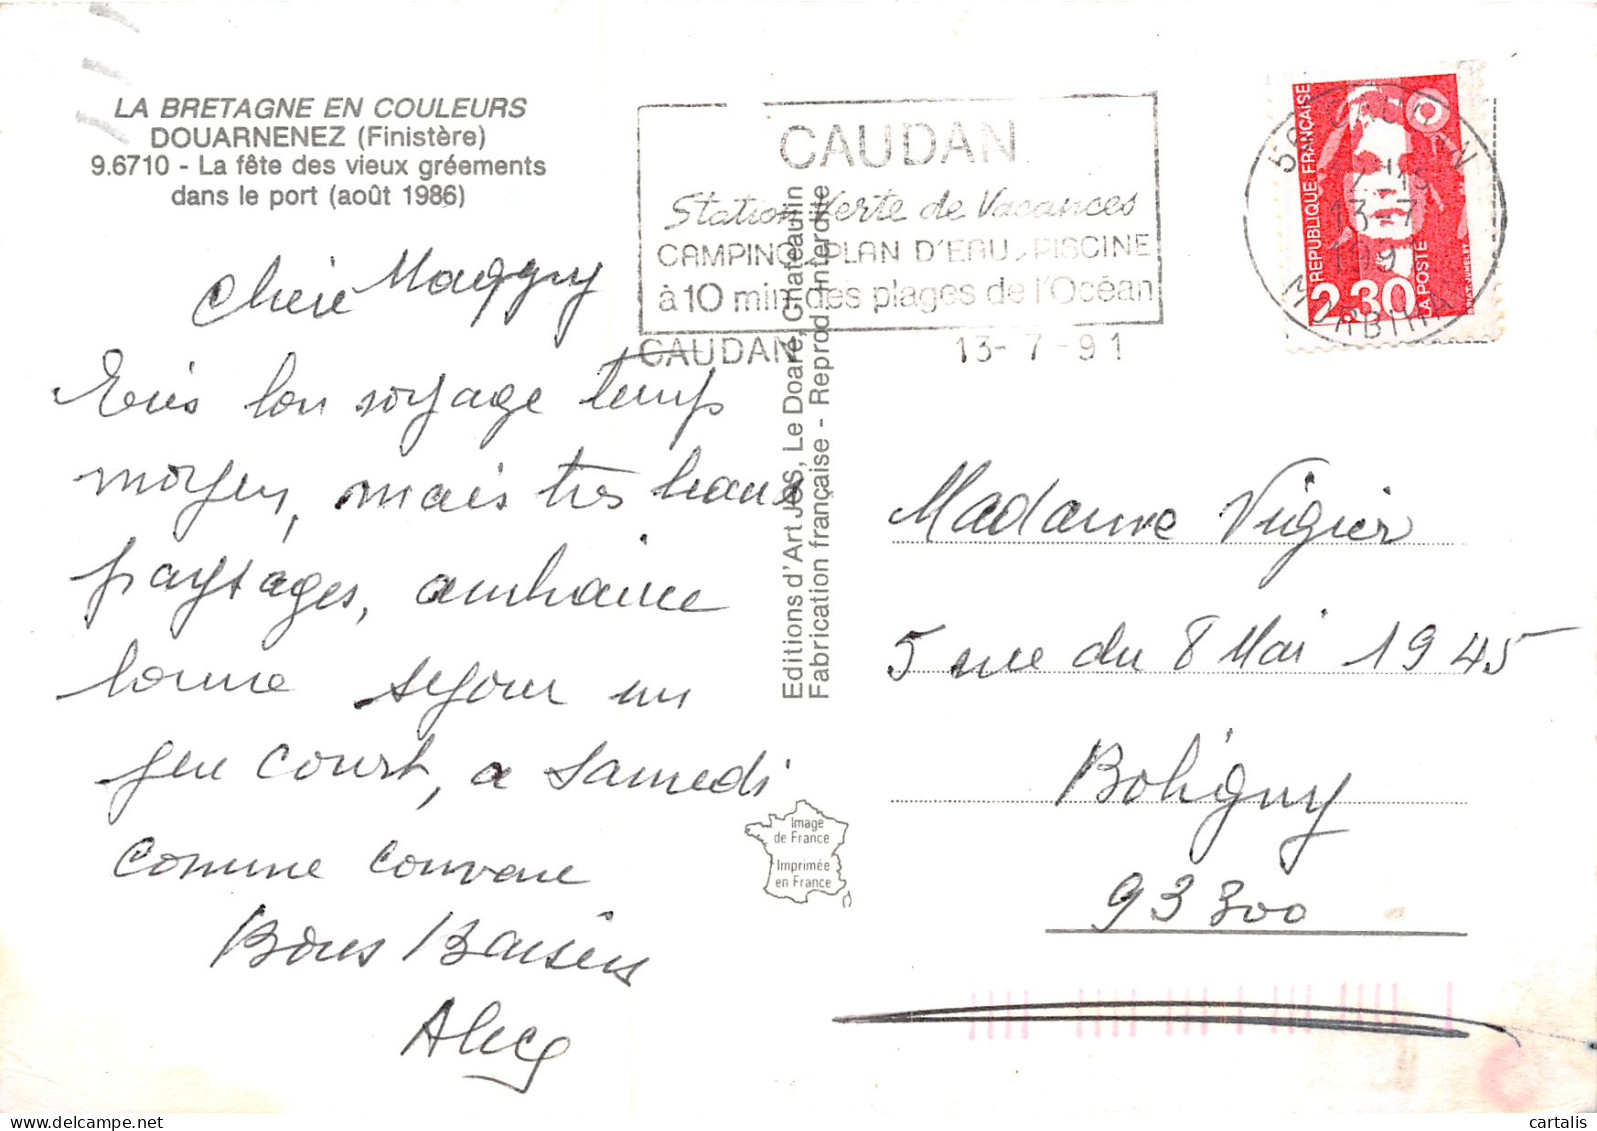 LA BRETAGNE EN COULEURS
DOUARNENEZ (Finistère)
9.6710 - La fête des vieux gréements
dans le port (août 1986)
CAUDAN
Station Verte de Vacances
CAMPING, PLAN D'EAU, PISCINE
à 10 min des plages de l'Océan
CAUDAN 13-7-91
13-7
MORBIHAN
REPUBLIQUE FRANÇAISE
2,30
LA POSTE
Chère Maggy
Très bon voyage temps
moyen, mais très beaux
paysages, ambiance
bonne séjour un
peu court, a samedi
comme convenu
Bons Baisers
Editions d'Art JOS, Le Doaré, Châteaulin
Fabrication française - Reprod. Interdite
Image
de France
Imprimée
en France
Madame Vigier
5 rue du 8 Mai 1945
Bobigny
93300
cartalis